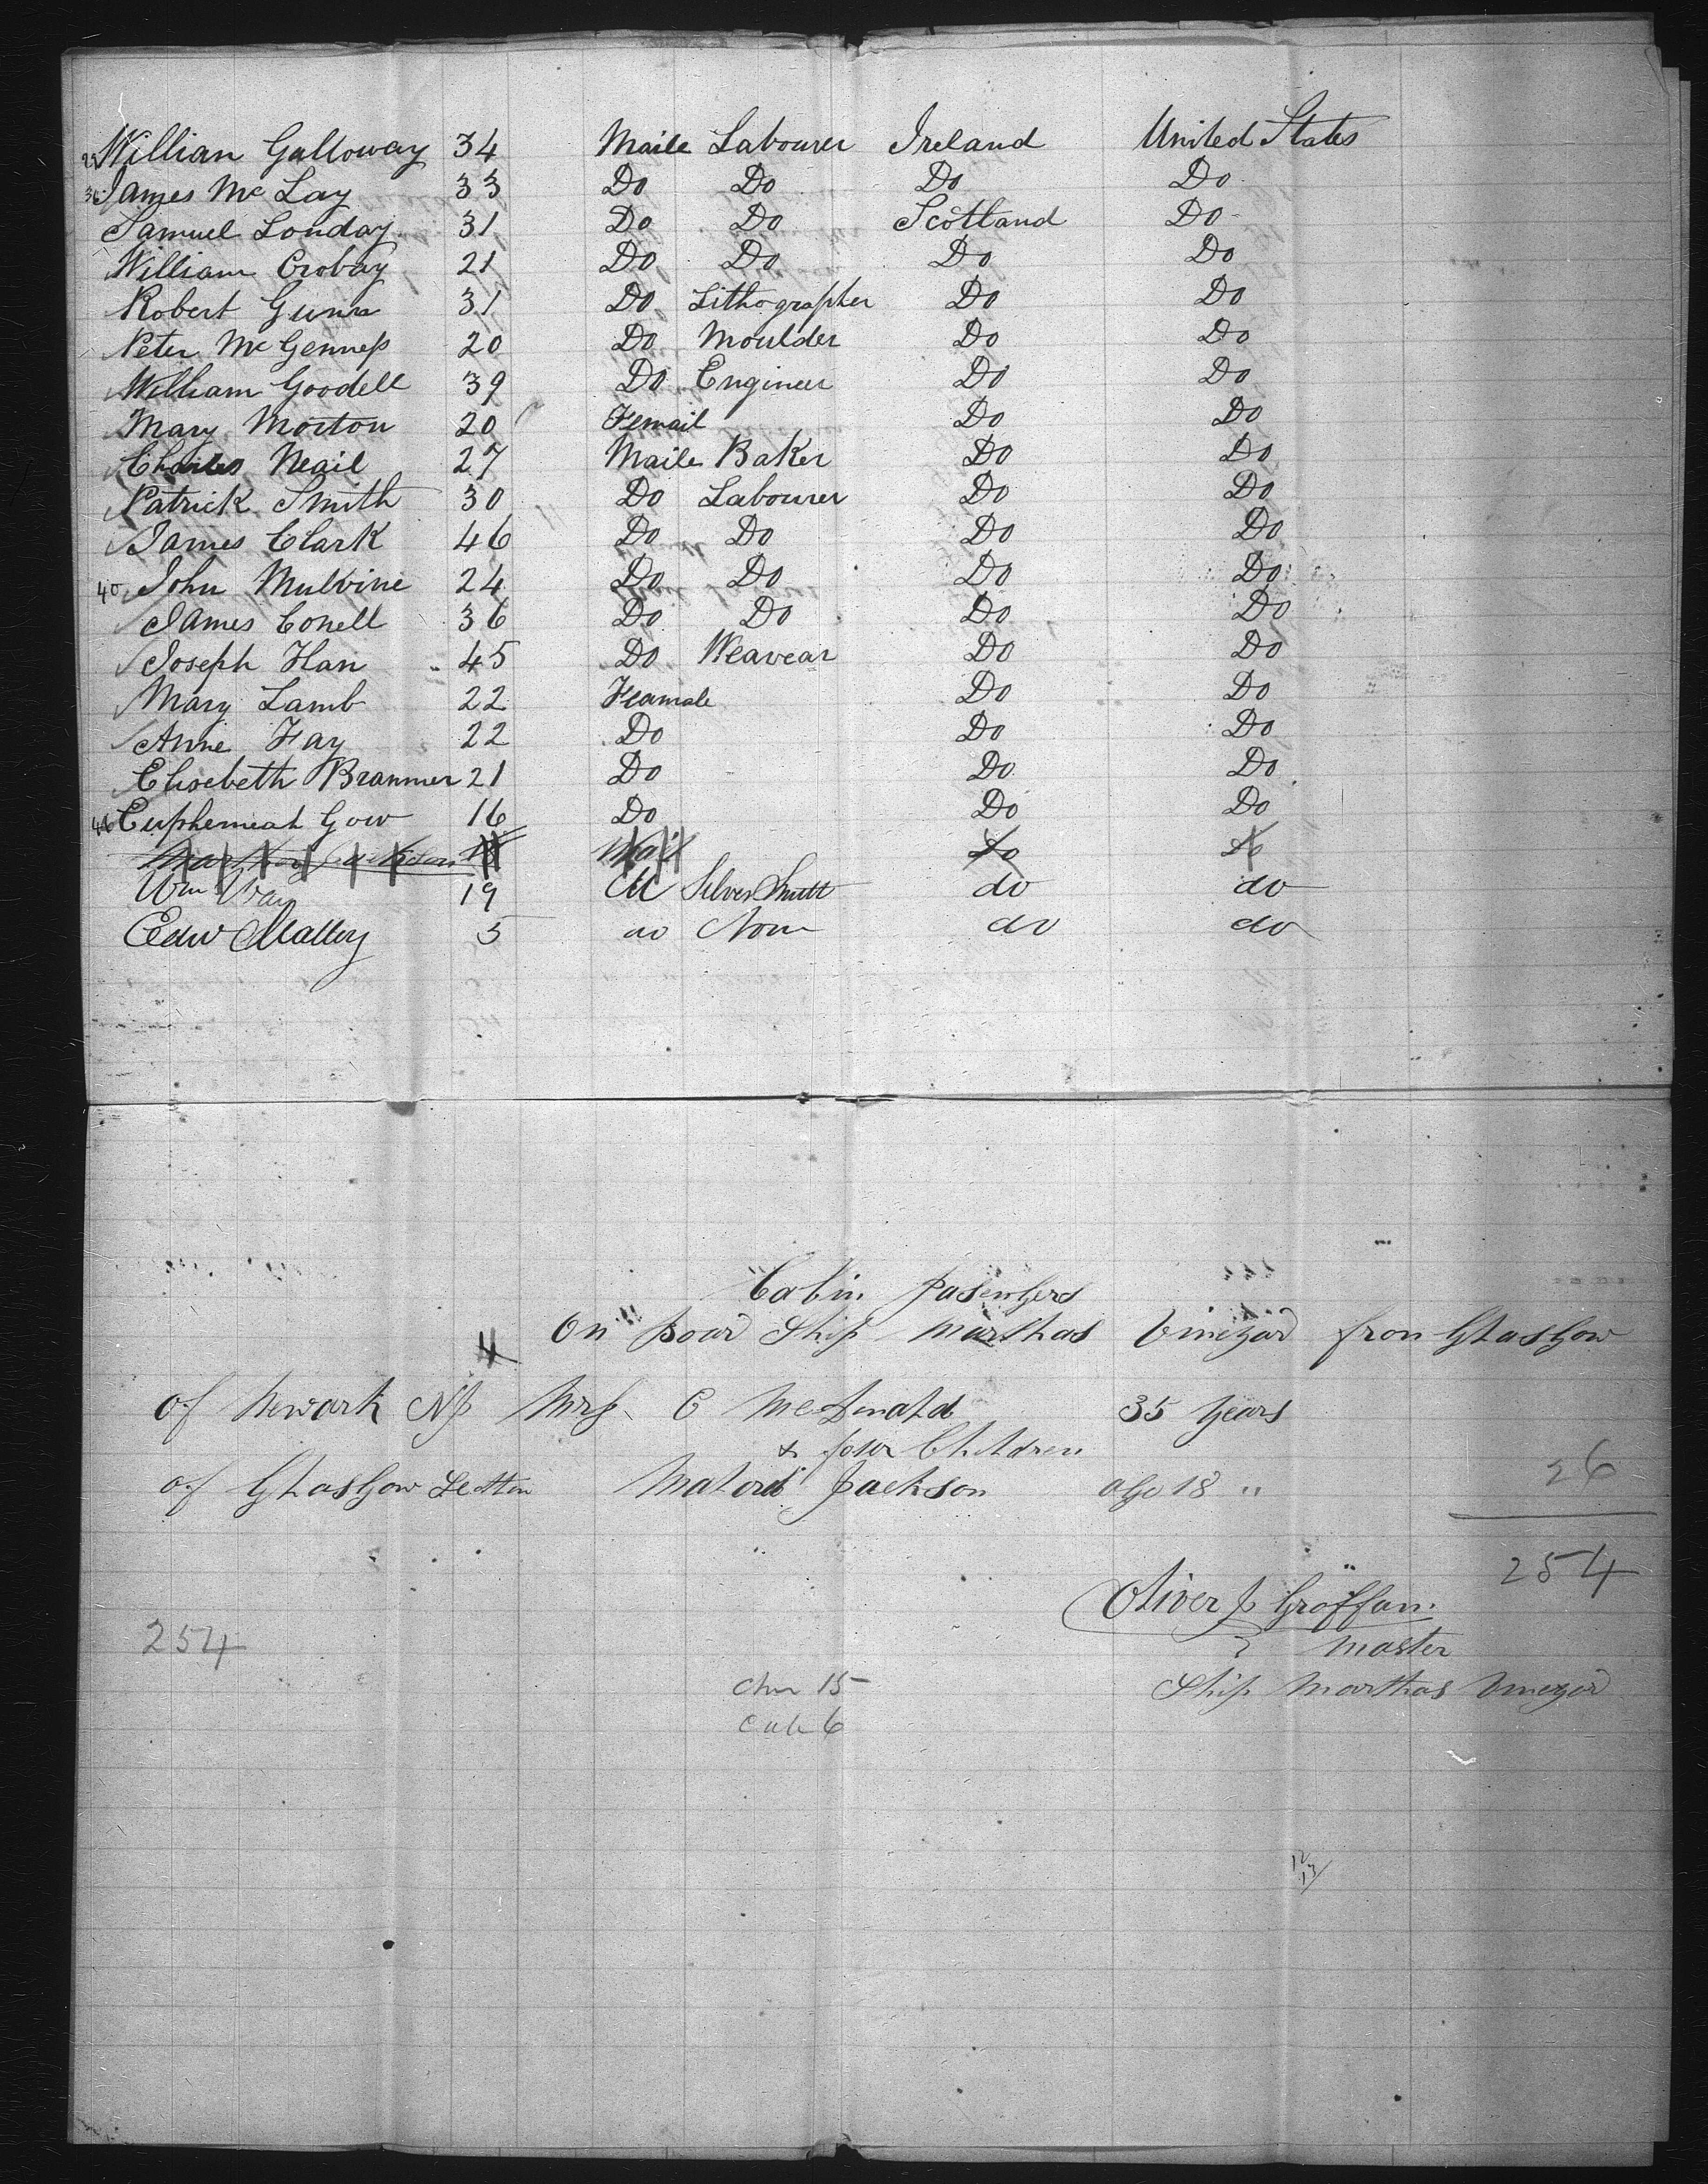 Willian Galloway 34 Maile Labourer Ireland United States
James Mc Lay 33 Do Do Do Do
Samuel Londay 31 Do Do Scotland Do
William Crobay 21 Do Do Do Do
Robert Gunn 31 Do Lithographer Do Do
Peter McGenness 20 Do Moulder Do Do
William Goodell 39 Do Engineer Do Do
Mary Morton 20 Femail Do Do
Charles Neail 27 Maile Baker Do Do
Patrick Smith 30 Do Labourer Do Do
James Clark 46 Do Do Do Do
40 John Mulvine 24 Do Do Do Do
James Conell 36 Do Do Do Do
Joseph Han 45 Do Weavear Do Do
Mary Lamb 22 Feamale Do Do
Anne Fay 22 Do Do Do
Elisebeth Brammer 21 Do Do Do
46 Euphemiah Gow 16 Do Do Do
Do Do
Wm 19 M Silver Smith do do
Edw Malley 5 do None do do
Cabin pasengers
4 On Board Ship Marthas Vineyard from Glasgow
of Newark NJ Mrs C McDonald 35 Years
& four Children
of Glasgow Jackson age 18 "
26
254
Oliver J Groffam
Master
254
Chn 15
Cab 6
Ship Marthas Vineyard
12/13